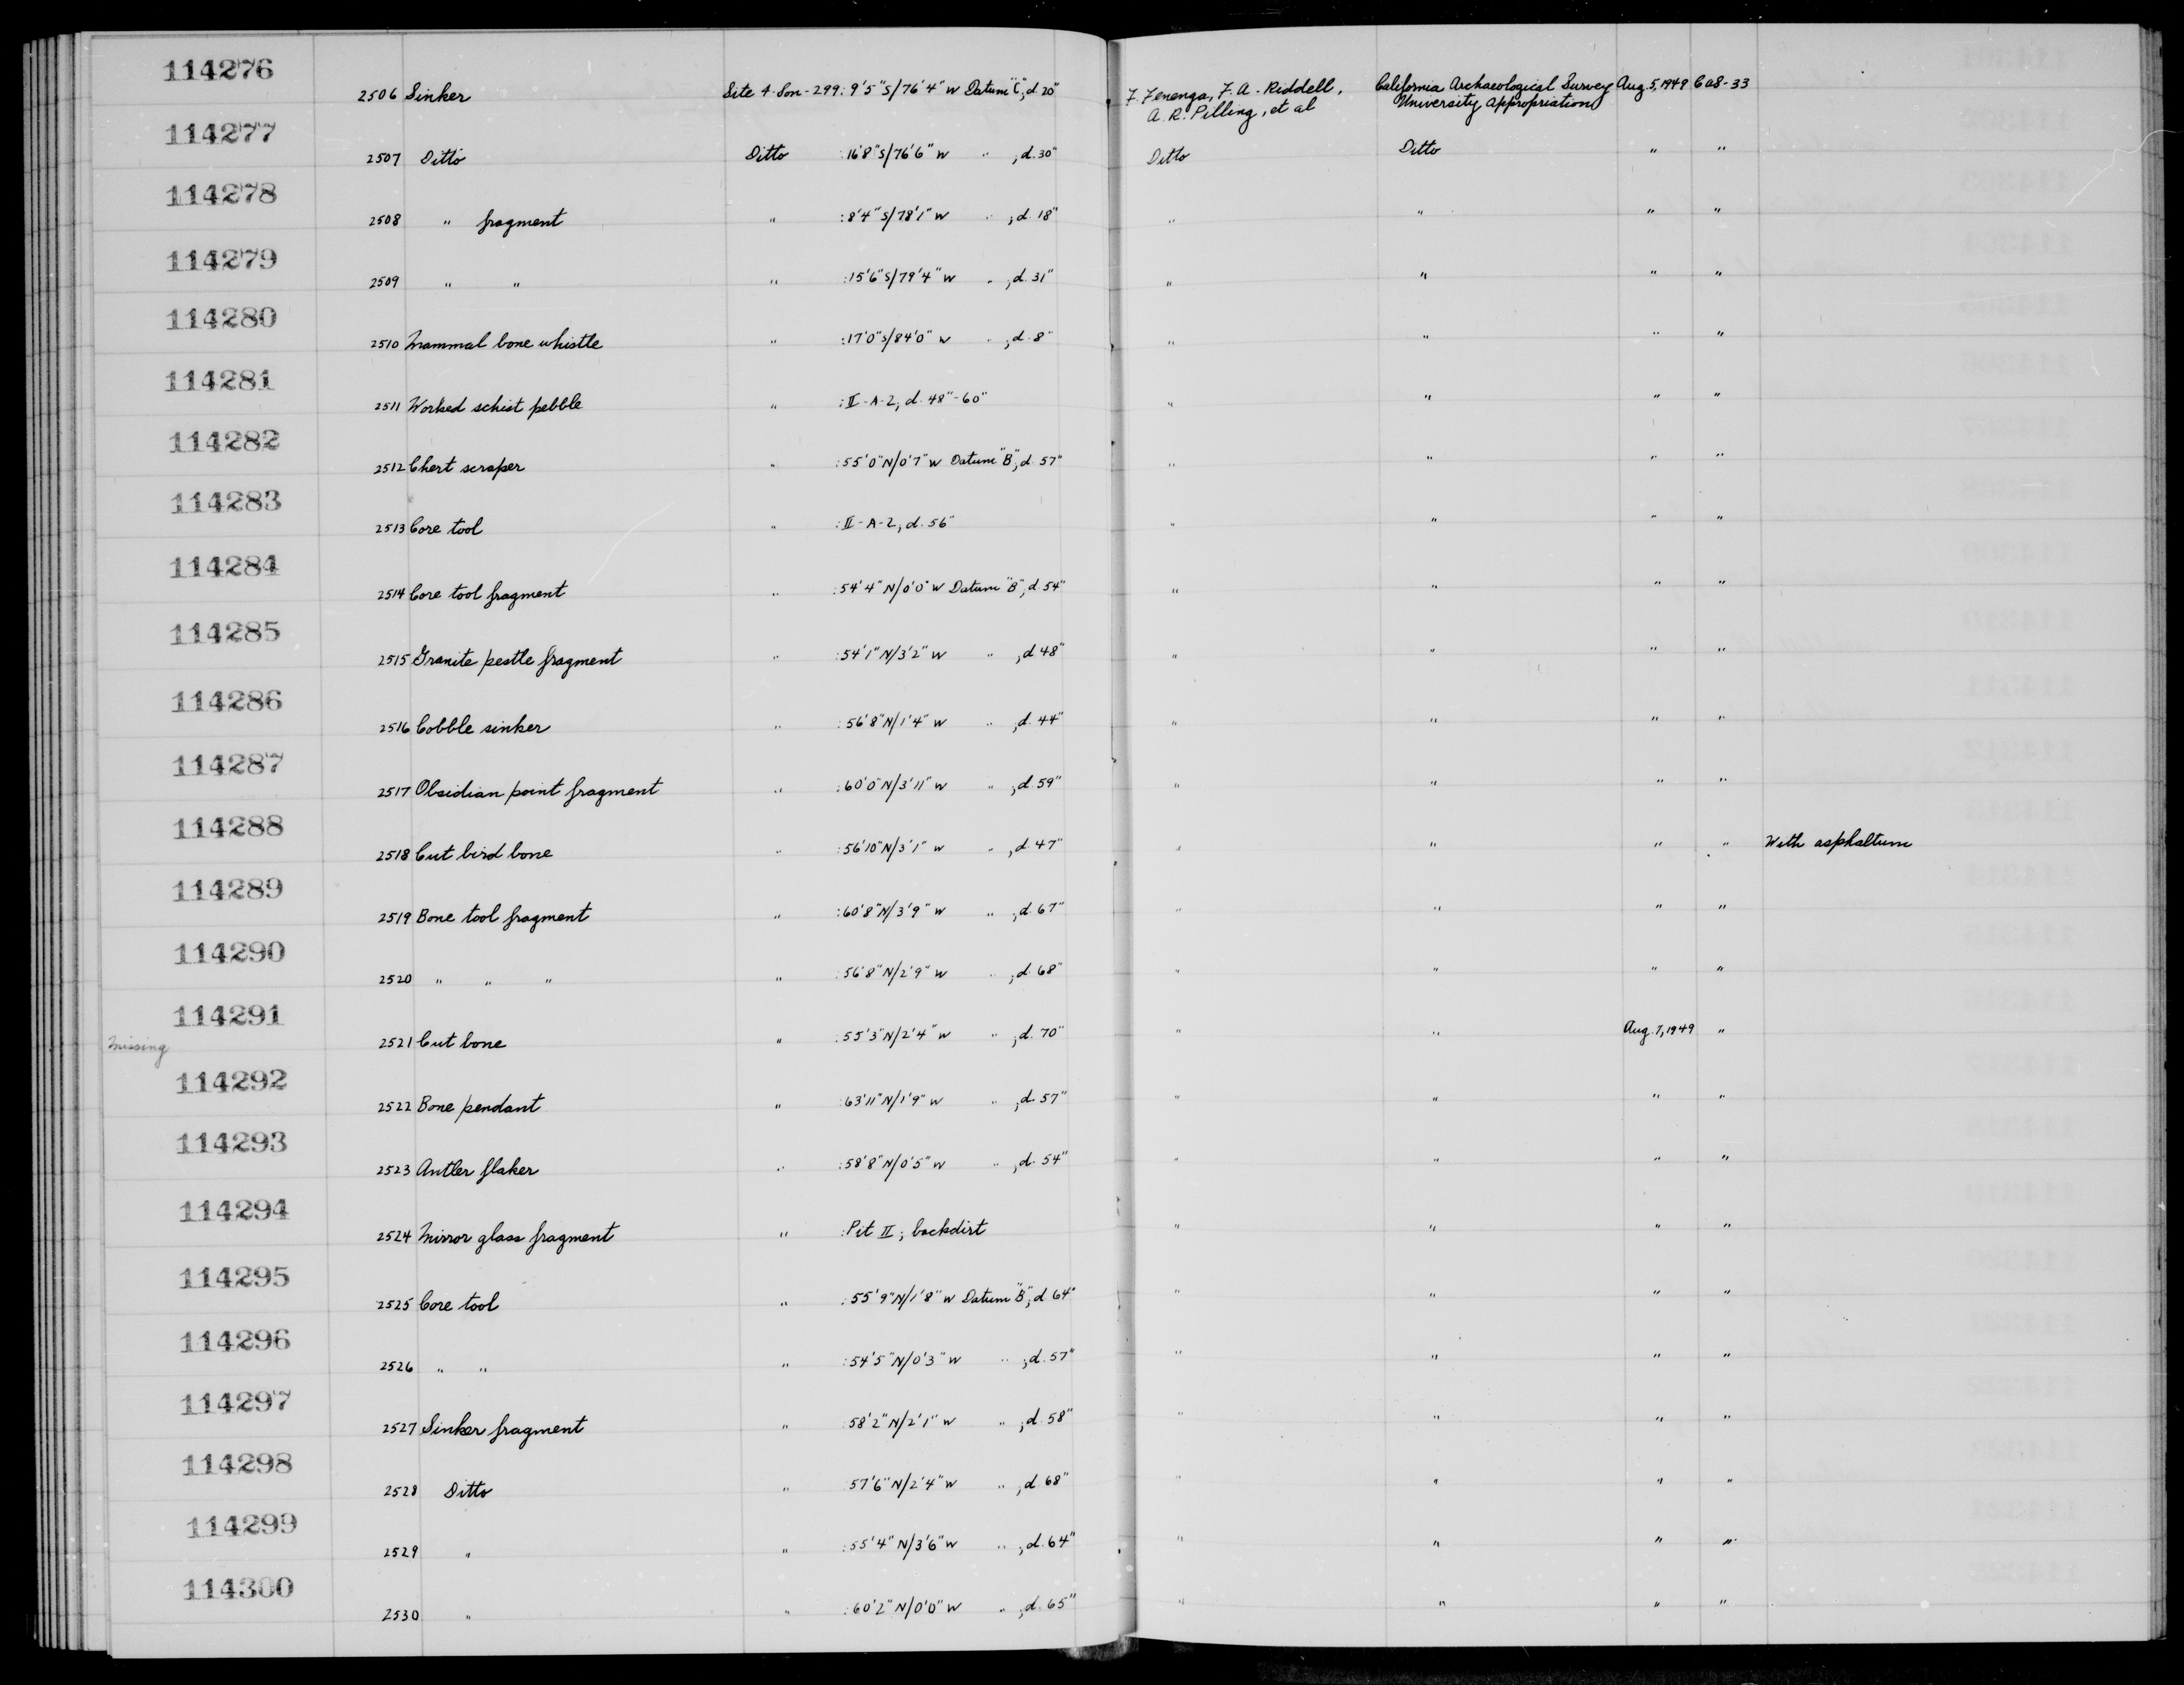 114276
2506 Sinker Site 4-Son-299: 9'5"S/76'4" W Datum "C", d. 20" F. Fenenga, F. A. Riddell, California Archaeological Survey Aug. 5, 1949 CaS-33
A. R. Pilling, et al University Appropriation
114277
2507 Ditto Ditto :16'8"S/76'6" W " , d. 30" Ditto Ditto " "
114278
2508 " fragment " :8'4"S/78'1" W " , d. 18" " " " "
114279
2509 " " " :15'6"S/79'4" W " , d. 31" " " " "
114280
2510 Mammal bone whistle " :17'0"S/84'0" W " , d. 8" " " " "
114281
2511 Worked schist pebble " :II-A-2, d. 48"-60" " " " "
114282
2512 Chert scraper " :55'0"N/0'7" W Datum "B", d. 57" " " " "
114283
2513 Core tool " :II-A-2, d. 56" " " " "
114284
2514 Core tool fragment " :54'4"N/0'0" W Datum "B", d. 54" " " " "
114285
2515 Granite pestle fragment " :54'1"N/3'2" W " , d 48" " " " "
114286
2516 Cobble sinker " :56'8"N/1'4" W " , d. 44" " " " "
114287
2517 Obsidian point fragment " :60'0"N/3'11" W " , d. 59" " " " "
114288
2518 Cut bird bone " :56'10"N/3'1" W " , d. 47" " " " " With asphaltum
114289
2519 Bone tool fragment " :60'8"N/3'9" W " , d. 67" " " " "
114290
2520 " " " " :56'8"N/2'9" W " , d. 68" " " " "
114291
Missing 2521 Cut bone " :55'3"N/2'4" W " , d. 70" " " Aug. 7, 1949 "
114292
2522 Bone pendant " :63'11"N/1'9" W " , d. 57" " " " "
114293
2523 Antler flaker " :58'8"N/0'5" W " , d. 54" " " " "
114294
2524 Mirror glass fragment " :Pit II; backdirt " " " "
114295
2525 Core tool " :55'9"N/1'8" W Datum "B", d 64" " " " "
114296
2526 " " " :54'5"N/0'3" W " , d. 57" " " " "
114297
2527 Sinker fragment " :58'2"N/2'1" W " , d. 58" " " " "
114298
2528 Ditto " :57'6"N/2'4" W " , d. 68" " " " "
114299
2529 " " :55'4"N/3'6" W " , d. 64" " " " "
114300
2530 " " :60'2"N/0'0" W " , d. 65" " " " "